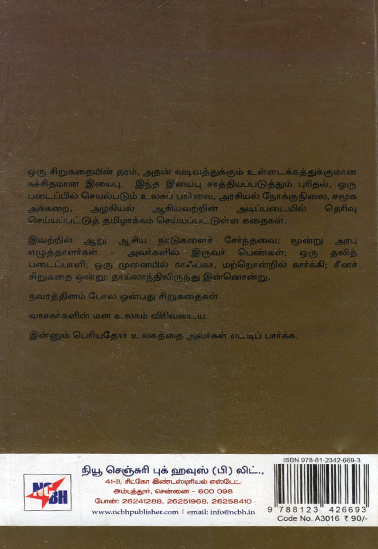 ஒரு சிறுகதையின் தரம், அதன் வடிவத்துக்கும் உள்ளடக்கத்துக்குமான
கச்சிதமான இயைபு. இந்த இயைபு சாத்தியப்படுத்தும் புரிதல், ஒரு
படைப்பில் செயல்படும் உலகப் பார்வை, அரசியல் நோக்குநிலை, சமூக
அக்கறை, அழகியல் ஆகியவற்றின் அடிப்படையில் தெரிவு
செய்யப்பட்டுத் தமிழாக்கம் செய்யப்பட்டுள்ள கதைகள்.
இவற்றில் ஆறு ஆசிய நாடுகளைச் சேர்ந்தவை; மூன்று அரபு
எழுத்தாளர்கள் - அவர்களில் இருவர் பெண்கள்; ஒரு தலித்
படைப்பாளி; ஒரு முனையில் காஃப்கா, மற்றொன்றில் கார்க்கி; சீனச்
சிறுகதை ஒன்று; தாய்லாந்திலிருந்து இன்னொன்று.
நவரத்தினம் போல ஒன்பது சிறுகதைகள்
வாசகர்களின் மன உலகம் விரிவடைய
இன்னும் பெரியதோர் உலகத்தை அவர்கள் எட்டிப் பார்க்க.
நியூ செஞ்சுரி புக் ஹவுஸ் (பி) லிட்.,
41-B, சிட்கோ இண்டஸ்டிரியல் எஸ்டேட்,
அம்பத்தூர், சென்னை - 600 098
போன்: 26241288, 26251968, 26258410
www.ncbhpublisher.com | email: info@ncbh.in
NCBH
ISBN 978-81-2342-669-3
9 788123 426693
Code No. A3016 ₹ 90/-